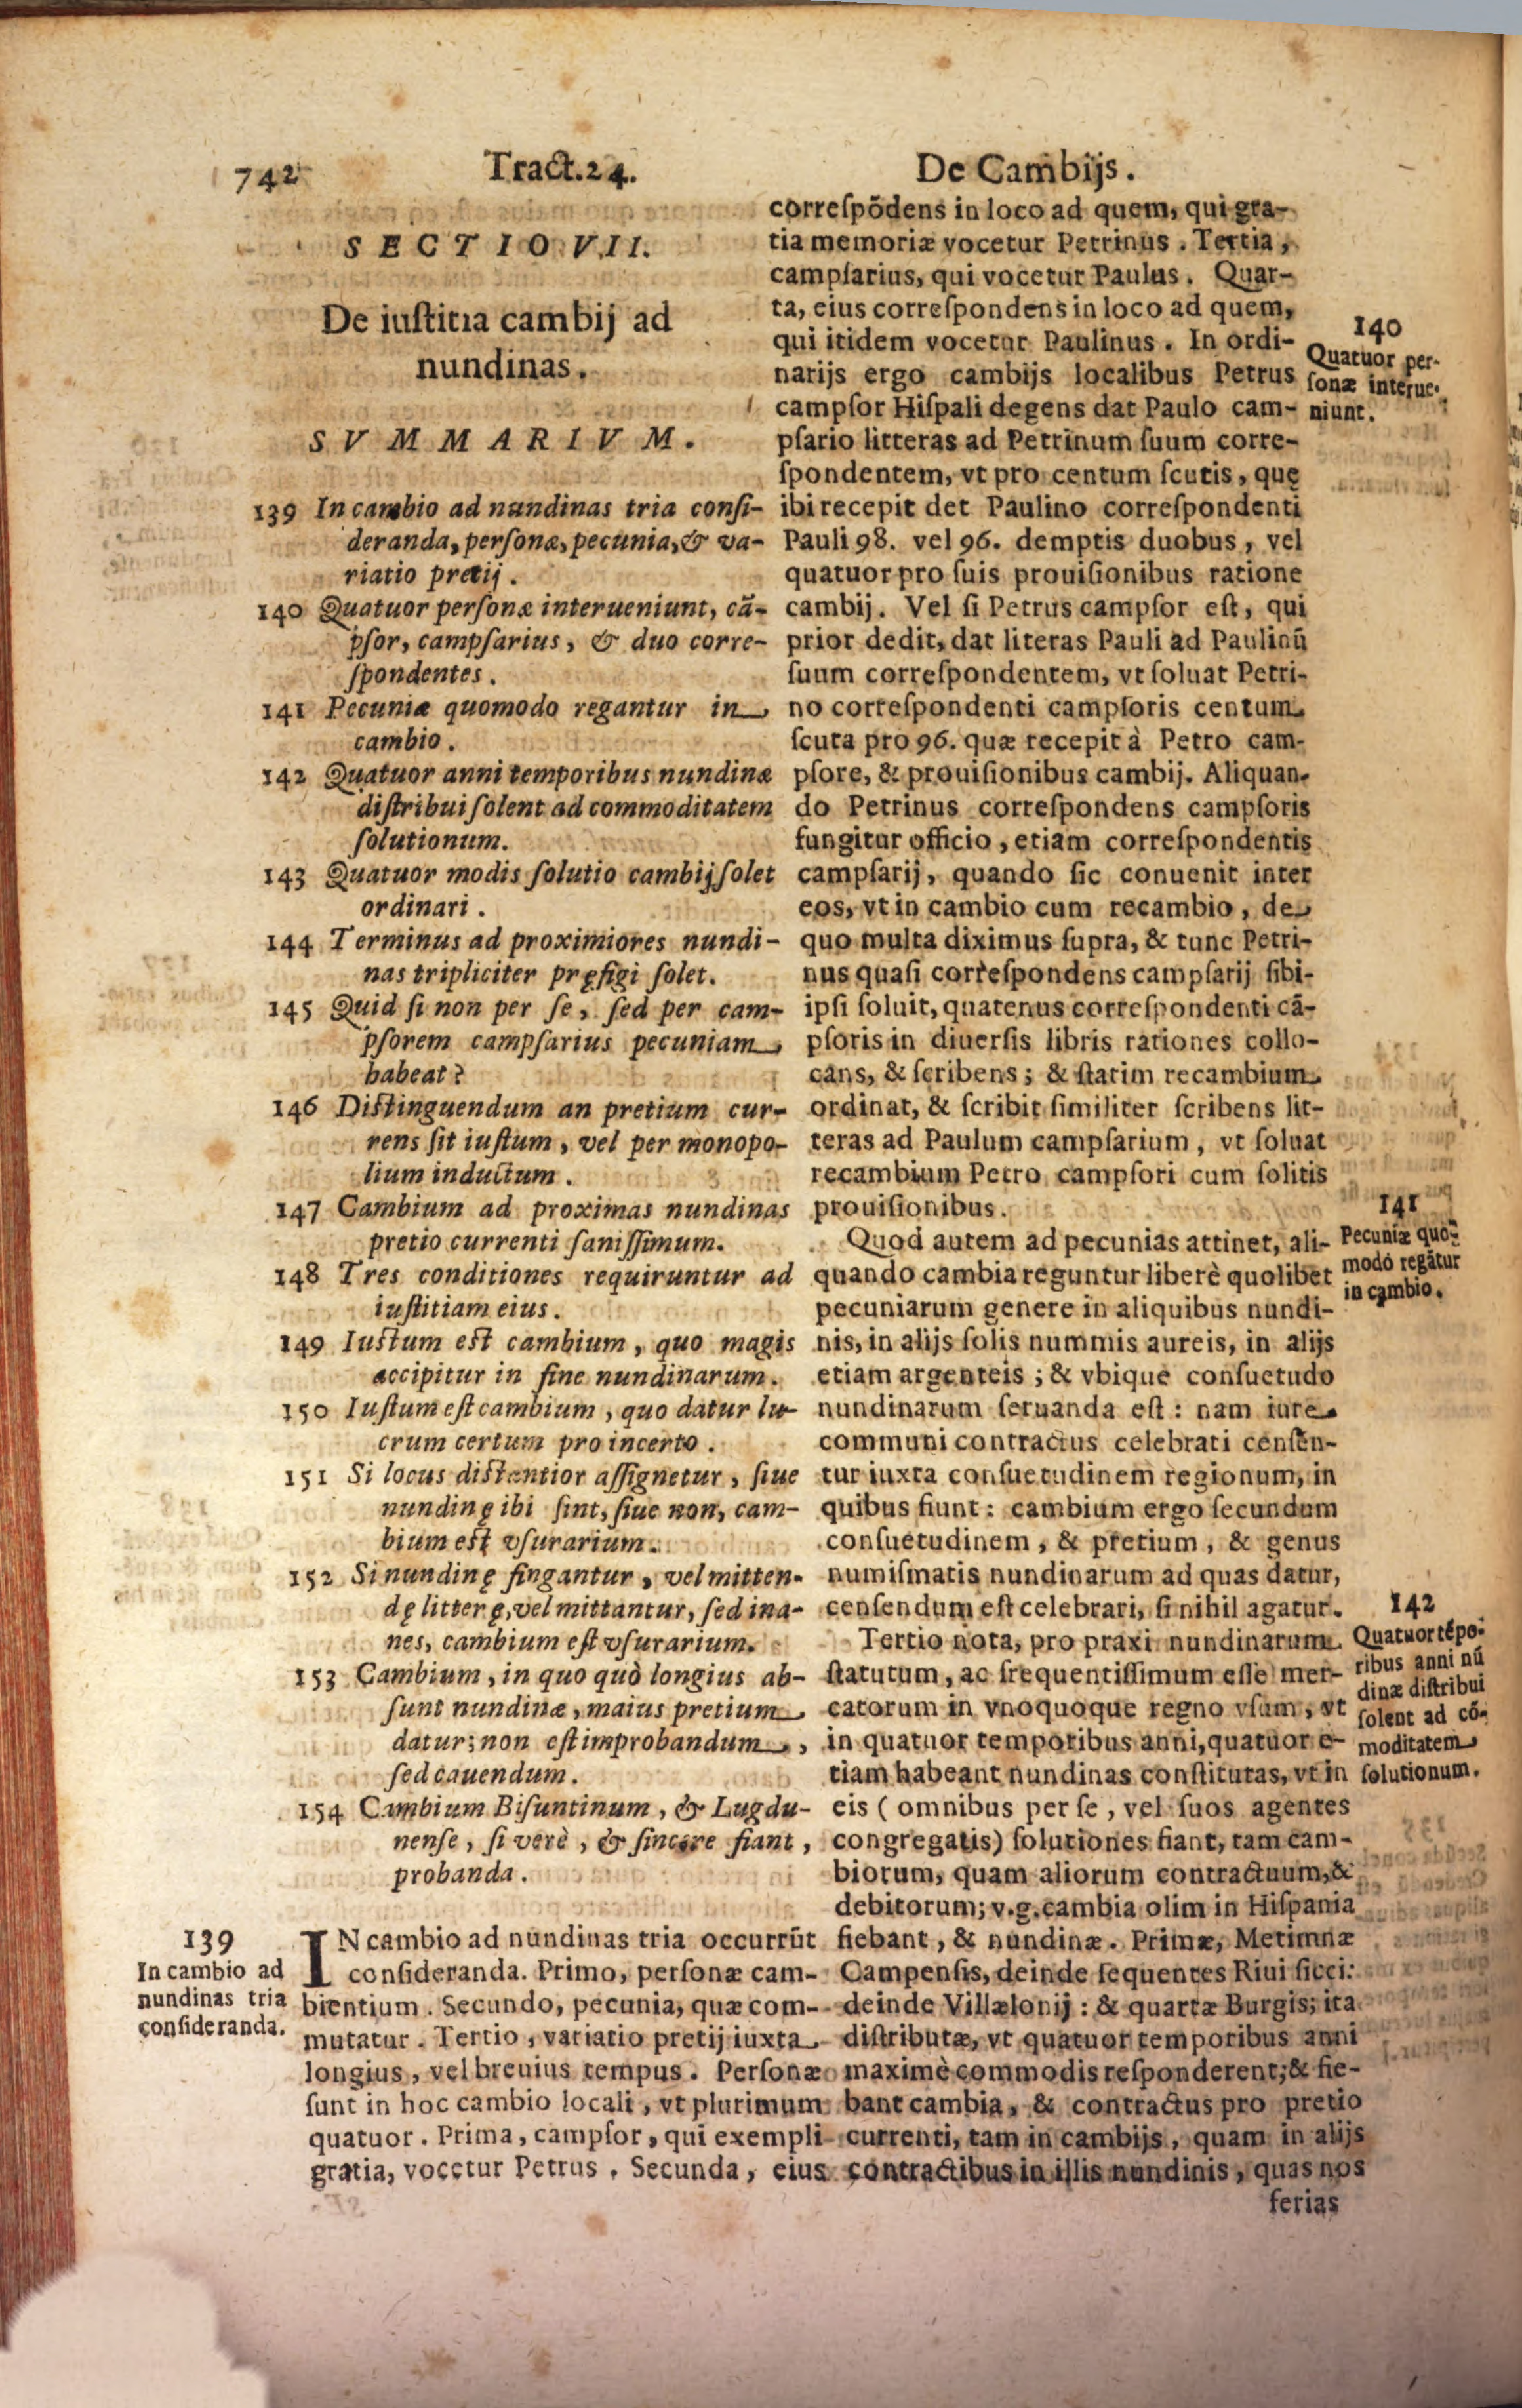 742 Tract.24. De Cambijs.
SECTIO VII.
De iuſtitia cambij ad
nundinas.
SVMMARIVM.
139 In cambio ad nundinas tria conſi-
deranda, perſonæ, pecunia, & va-
riatio pretij.
140 Quatuor perſonæ interueniunt, cã-
pſor, campſarius, & duo corre-
ſpondentes.
141 Pecuniæ quomodo regantur in
cambio.
142 Quatuor anni temporibus nundinæ
diſtribui ſolent ad commoditatem
ſolutionum.
143 Quatuor modis ſolutio cambij ſolet
ordinari.
144 Terminus ad proximiores nundi-
nas tripliciter pręfigi ſolet.
145 Quid ſi non per ſe, ſed per cam-
pſorem campſarius pecuniam
habeat?
146 Diſtinguendum an pretium cur-
rens ſit iuſtum, vel per monopo-
lium inductum.
147 Cambium ad proximas nundinas
pretio currenti ſaniſſimum.
148 Tres conditiones requiruntur ad
iuſtitiam eius.
149 Iuſtum eſt cambium, quo magis
accipitur in fine nundinarum.
150 Iuſtum eſt cambium, quo datur lu-
crum certum pro incerto.
151 Si locus diſtantior aſſignetur, ſiue
nundinę ibi ſint, ſiue non, cam-
bium eſt vſurarium.
152 Si nundinę fingantur, vel mitten-
dę litterę, vel mittantur, ſed ina-
nes, cambium eſt vſurarium.
153 Cambium, in quo quò longius ab-
ſunt nundinæ, maius pretium
datur; non eſt improbandum,
ſed cauendum.
154 Cambium Biſuntinum, & Lugdu-
nenſe, ſi verè, & ſincere fiant,
probanda.
139
In cambio ad
nundinas tria
conſideranda.
IN cambio ad nundinas tria occurrũt
conſideranda. Primo, perſonæ cam-
bientium. Secundo, pecunia, quæ com-
mutatur. Tertio, variatio pretij iuxta
longius, vel breuius tempus. Perſonæ
ſunt in hoc cambio locali, vt plurimum
quatuor. Prima, campſor, qui exempli
gratia, vocetur Petrus. Secunda, eius
correſpõdens in loco ad quem, qui gra-
tia memoriæ vocetur Petrinus. Tertia,
campſarius, qui vocetur Paulus. Quar-
ta, eius correſpondens in loco ad quem,
qui itidem vocetur Paulinus. In ordi-
narijs ergo cambijs localibus Petrus
campſor Hiſpali degens dat Paulo cam-
pſario litteras ad Petrinum ſuum corre-
ſpondentem, vt pro centum ſcutis, quę
ibi recepit det Paulino correſpondenti
Pauli 98. vel 96. demptis duobus, vel
quatuor pro ſuis prouiſionibus ratione
cambij. Vel ſi Petrus campſor eſt, qui
prior dedit, dat literas Pauli ad Paulinũ
ſuum correſpondentem, vt ſoluat Petri-
no correſpondenti campſoris centum
ſcuta pro 96. quæ recepit à Petro cam-
pſore, & prouiſionibus cambij. Aliquan-
do Petrinus correſpondens campſoris
fungitur officio, etiam correſpondentis
campſarij, quando ſic conuenit inter
eos, vt in cambio cum recambio, de
quo multa diximus ſupra, & tunc Petri-
nus quaſi correſpondens campſarij ſibi-
ipſi ſoluit, quatenus correſpondenti cã-
pſoris in diuerſis libris rationes collo-
cans, & ſcribens; & ſtatim recambium
ordinat, & ſcribit ſimiliter ſcribens lit-
teras ad Paulum campſarium, vt ſoluat
recambium Petro campſori cum ſolitis
prouiſionibus.
Quod autem ad pecunias attinet, ali-
quando cambia reguntur liberè quolibet
pecuniarum genere in aliquibus nundi-
nis, in alijs ſolis nummis aureis, in alijs
etiam argenteis; & vbique conſuetudo
nundinarum ſeruanda eſt: nam iure
communi contractus celebrati cenſen-
tur iuxta conſuetudinem regionum, in
quibus fiunt: cambium ergo ſecundum
conſuetudinem, & pretium, & genus
numiſmatis nundinarum ad quas datur,
cenſendum eſt celebrari, ſi nihil agatur.
Tertio nota, pro praxi nundinarum
ſtatutum, ac frequentiſſimum eſſe mer-
catorum in vnoquoque regno vſum, vt
in quatuor temporibus anni, quatuor e-
tiam habeant nundinas conſtitutas, vt in
eis (omnibus per ſe, vel ſuos agentes
congregatis) ſolutiones fiant, tam cam-
biorum, quam aliorum contractuum, &
debitorum; v.g. cambia olim in Hiſpania
fiebant, & nundinæ. Primæ, Metimnæ
Campenſis, deinde ſequentes Riui ſicci:
deinde Villælonij: & quartæ Burgis; ita
diſtributæ, vt quatuor temporibus anni
maximè commodis reſponderent; & fie-
bant cambia, & contractus pro pretio
currenti, tam in cambijs, quam in alijs
contractibus in illis nundinis, quas nos
ferias
140
Quatuor per-
ſonæ interue-
niunt.
141
Pecuniæ quo-
modo regãtur
in cambio.
142
Quatuor tẽpo-
ribus anni nũ
dinæ diſtribui
ſolent ad cõ-
moditatem
ſolutionum.